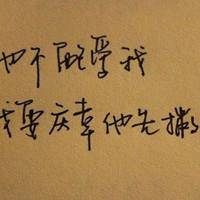 他不 爱我
我要庆幸他先撒